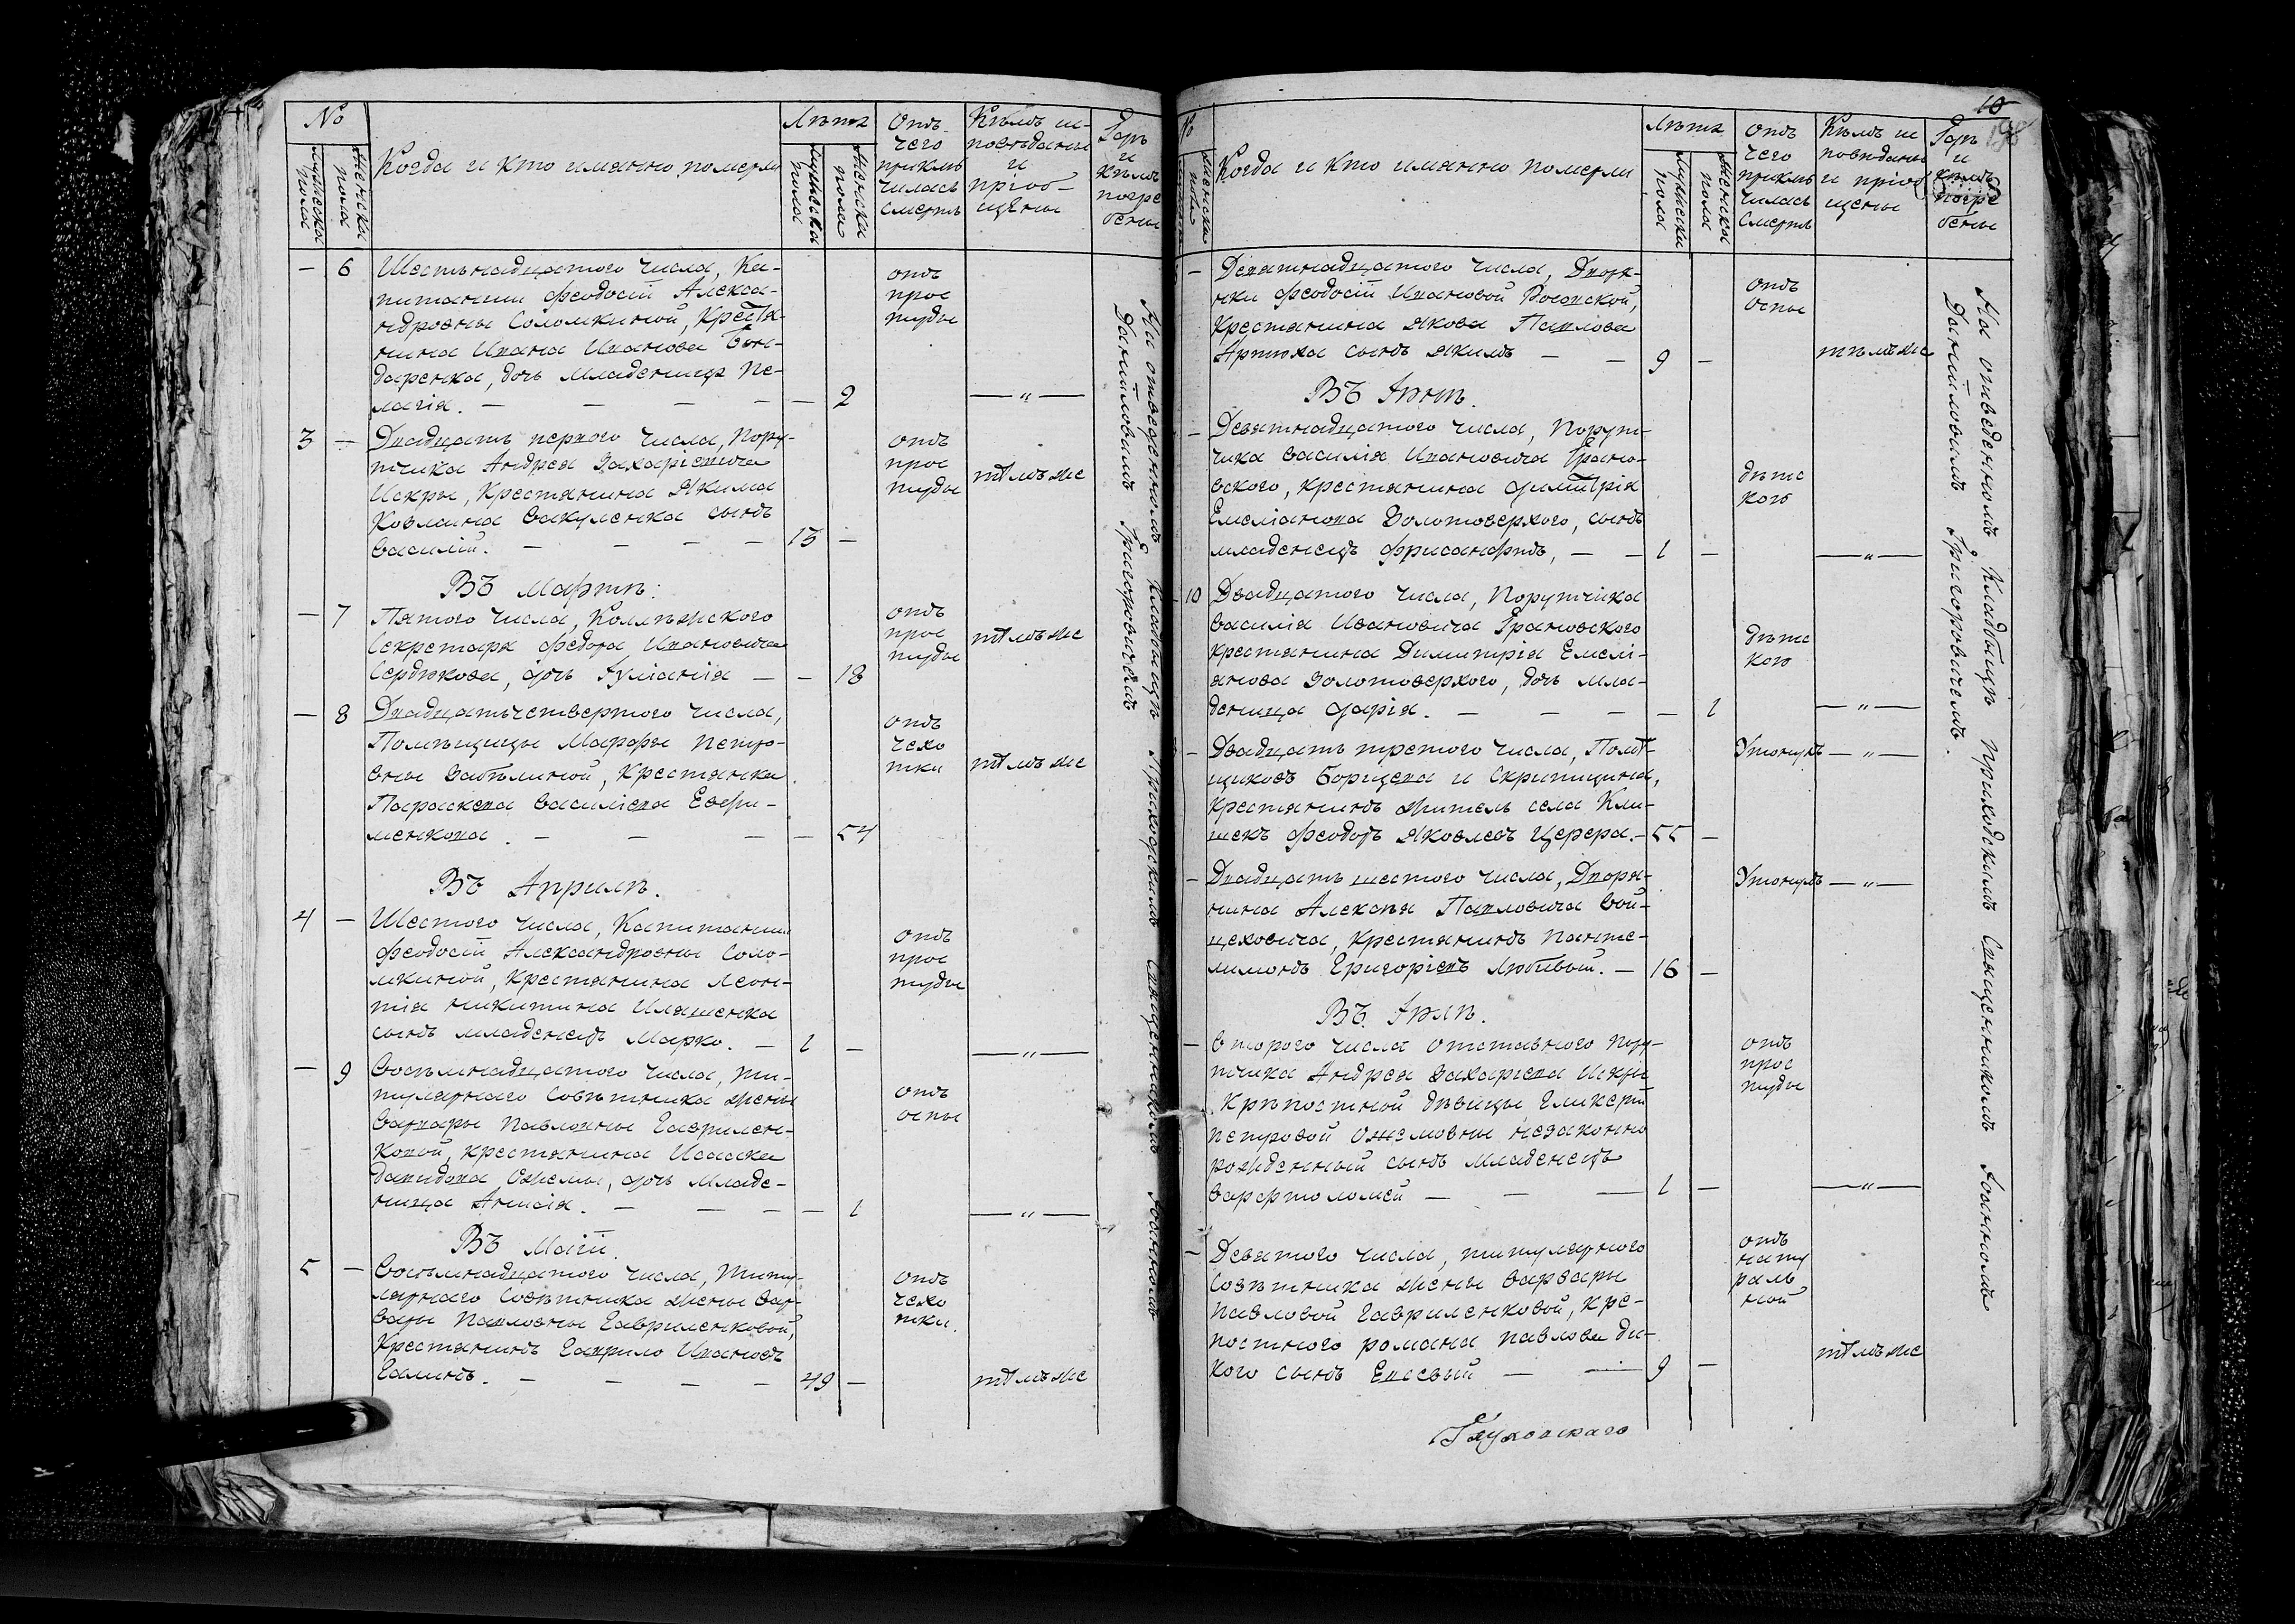 №
Мужеска пола
Женска пола
Когда и кто имянно померли
Лѣта
Мужеска пола
Женска пола
Отъ
чего
приклю
чилась
смерть
Кѣмъ ис-
повѣданы
и
пріоб-
щены
Гдѣ
и
кѣмъ
погре
бены
— 6 Шестьнадцатого числа, Ка-
питанши Феодосіи Алекса-
ндровны Соломкиной, Крестя-
нина Ивана Иванова Бон-
даренка, дочь младеница Пе-
лагія. — — — — — 2
отъ
прос
туды
— „ —
3 — Двадцать первого числа, Пору-
тчика Андрея Захаріевича
Искры, Крестянина Якима
Ковмина Вакуленка сынъ
Василій. — — — — 15 —
отъ
прос
туды
тѣмъ же
Въ Мартѣ:
— 7 Пятого числа, Коллѣжского
Секретаря Федора Ивановича
Сердюкова, дочь Іуліанія — — 18
отъ
прос
туды
тѣмъ же
— 8 Двадцатьчетвертого числа,
Помѣщицы Марфы Петро-
вны Забѣлиной, Крестянка
Параскева Василіева Ефи-
менкова. — — — — 54
отъ
чехо
тки
тѣмъ же
Въ Априлѣ.
4 — Шестого числа, Капитанши
Феодосіи Александровны Соло-
мкиной, Крестянина Леон-
тія Никитина Иляшенка
сынъ младенецъ Марко. — 1 —
отъ
прос
туды
— „ —
— 9 Восьмнадцатого числа, ти-
тулярнаго Совѣтника жены
Варвары Павловны Гаврилен-
ковой, крестянина Исаака
Давидова Ожемы, дочь младе-
ница Анисія. — — — — 1
отъ
оспы
— „ —
Въ Маіи.
5 — Восьмнадцатого числа, Титу-
лярнаго Совѣтника жены Вар-
вары Павловны Гавриленковой,
Крестянинъ Гаврило Ивановъ
Галинъ. — — — — 49 —
отъ
чехо
тки.
тѣмъ же
На отведенномъ кладбищѣ Приходскимъ Священникомъ Іоанномъ
Даниловимъ Григоровичемъ
10
№
Женска пола
Когда и кто имянно померли
Лѣта
Мужеска пола
Женска пола
Отъ
чего
приклю
чилась
смерть
Кѣмъ ис
повѣданы
и пріоб
щены
Гдѣ
и
кѣмъ
погре
бены
— Девятнадцатого числа, Дворя-
нки Феодосіи Ивановой
Крестянина Якова Павлова
Артюха сынъ Якимъ — — 9 —
отъ
оспы
тѣмъ же
Въ Іюнѣ.
— Девятнадцатого числа, Порут-
чика Василія Ивановича Грано-
вского, крестянина Димитрія
Емеліанова Золотоверхого, сынъ
младенецъ Фрисанфъ, — — 1 —
дѣтс
кого
— „ —
— 10 Двадцатого числа, Порутчика
Василія Ивановича Грановского
крестянина Димитрія Емелі-
анова Золотоверхого, дочь мла-
деница Дарія. — — — — 1
дѣтс
кого
— „ —
— Двадцать третого числа, Помѣ-
щиковъ Борщева и Скрипицина,
Крестянинъ житель села Кли-
шекъ Феодоръ Яковлевъ Церера. — 55 —
Утонулъ — „ —
— Двадцать шестого числа, Дворя-
нина Алексѣя Павловича Вой-
цеховича, Крестянинъ Панте-
лимонъ Григоріевъ Любивый. — 16 —
Утонулъ — „ —
Въ Іюлѣ.
— Второго числа Отставного пору-
тчика Андрея Захариева Искры
Крѣпостной дѣвицы Гликеріи
Петровой Ожемовны незаконно
рожденный сынъ младенецъ
Варфтоломей — — — 1 —
отъ
прос
туды
— „ —
— Девятого числа, титулярного
Совѣтника жены Варвары
Павловой Гавриленковой, крѣ-
постного романа Павлова Ди-
кого сынъ Евсевый — — 9 —
отъ
нату
раль
ной
тѣмъ же
На отведенномъ Кладбищѣ Приходскимъ Священникомъ Іоанномъ
Даниловимъ Григоровичемъ.
Глуховскаго